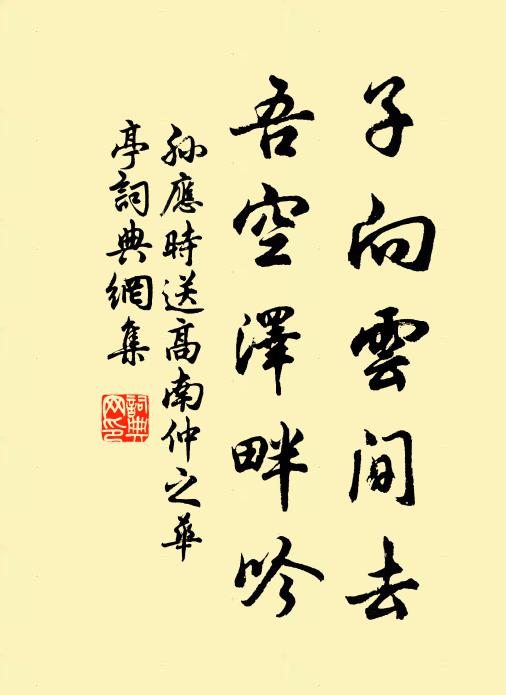 子向雲間去
吾空澤畔吟
孫應時送高南仲之華
亭詞典網集
詞典
网印